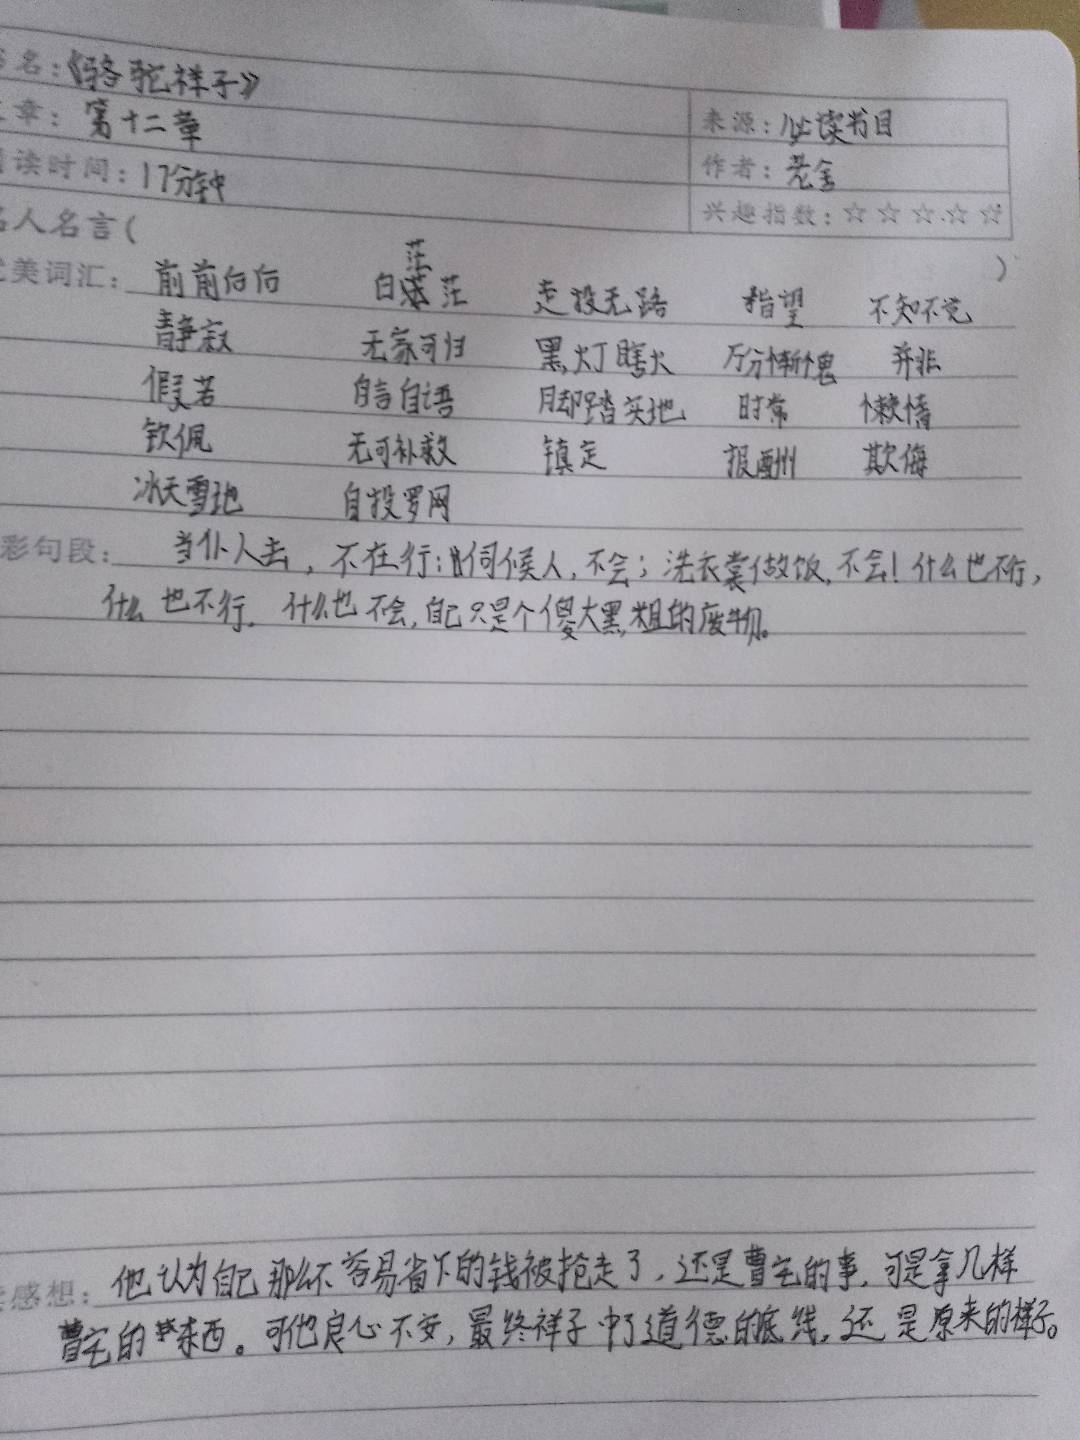 书名：《骆驼祥子》
章：第十二章
来源：必读书目
阅读时间：17分钟
作者：老舍
名人名言（ ）
兴趣指数：☆☆☆☆☆
优美词汇： 前前后后 白茫茫 走投无路 指望 不知不觉
静寂 无家可归 黑灯瞎火 万分惭愧 并非
假若 自言自语 脚踏实地 时常 懒惰
钦佩 无可补救 镇定 报酬 欺侮
冰天雪地 自投罗网
彩句段： 当仆人去，不在行：伺候人，不会；洗衣裳做饭，不会！什么也不行，
什么也不行，什么也不会，自己只是个傻大黑粗的废物。
感想： 他认为自己那么不容易省下的钱被抢走了，还是曹宅的事，可是拿几样
曹宅的东西。可他良心不安，最终祥子 道德的底线，还是原来的样子。